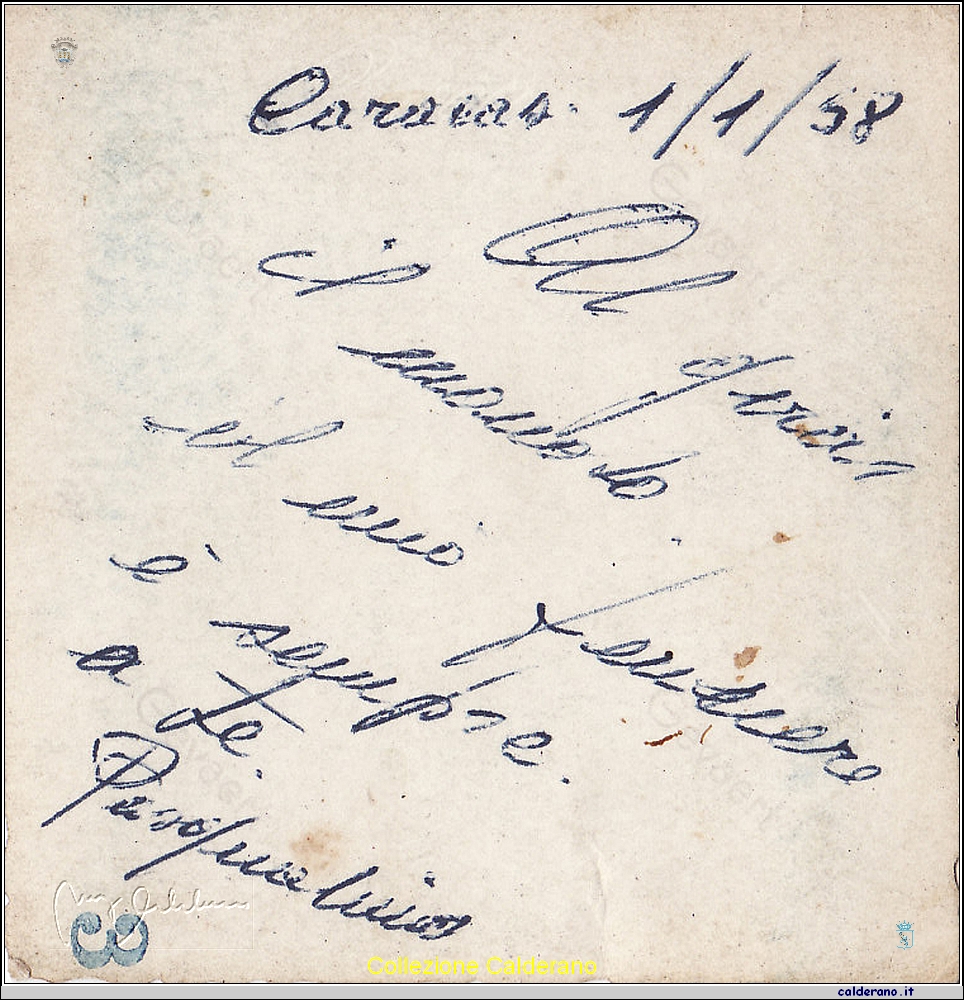 Caracas. 1/1/58
mondo
il mio pensiero
è sempre.
a te.
Pasqualino
3
Collezione Calderano
calderano.it